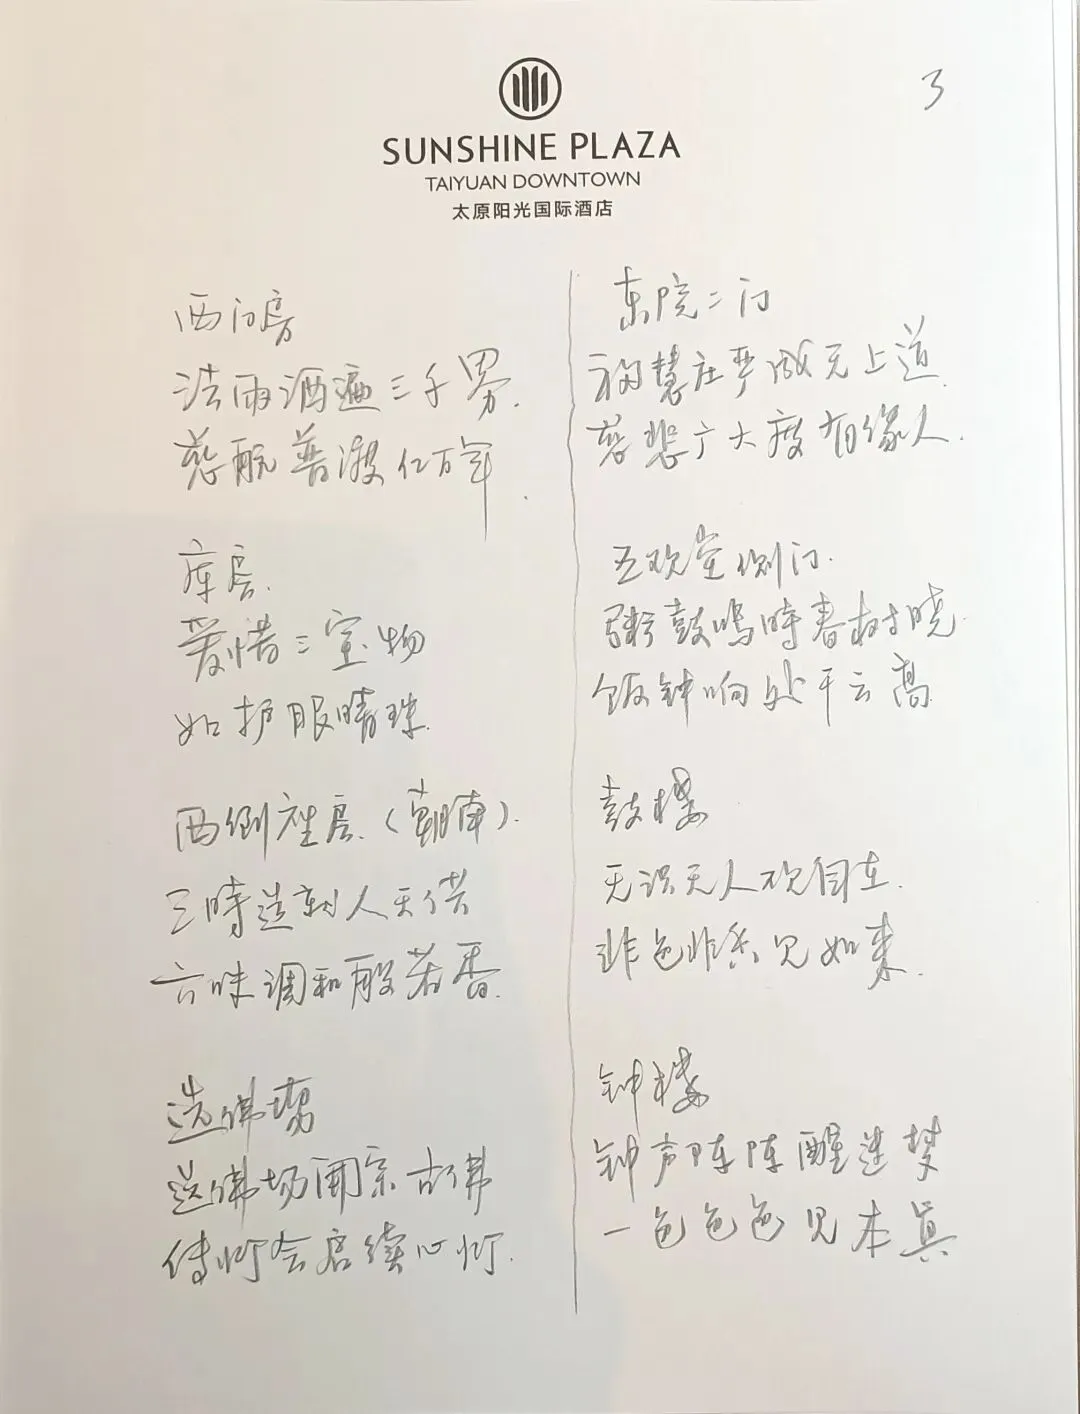 3
SUNSHINE PLAZA
TAIYUAN DOWNTOWN
太原阳光国际酒店
西门房
法雨洒遍三千界.
慈航普渡亿万年.
库房.
爱惜三宝物
如护眼睛珠.
西侧座房.(朝南).
三時造就人天供
六味调和般若香.
选佛场
选佛场開宗古佛
传灯会启续心灯.
东院二门
福慧庄严成无上道.
慈悲广大度有缘人.
五观堂侧门.
粥鼓鳴時春树晓.
饭钟响处干云高.
鼓楼
无我无人观自在.
非色非香见如来.
钟楼
钟声阵阵醒迷梦
一色色色见本真